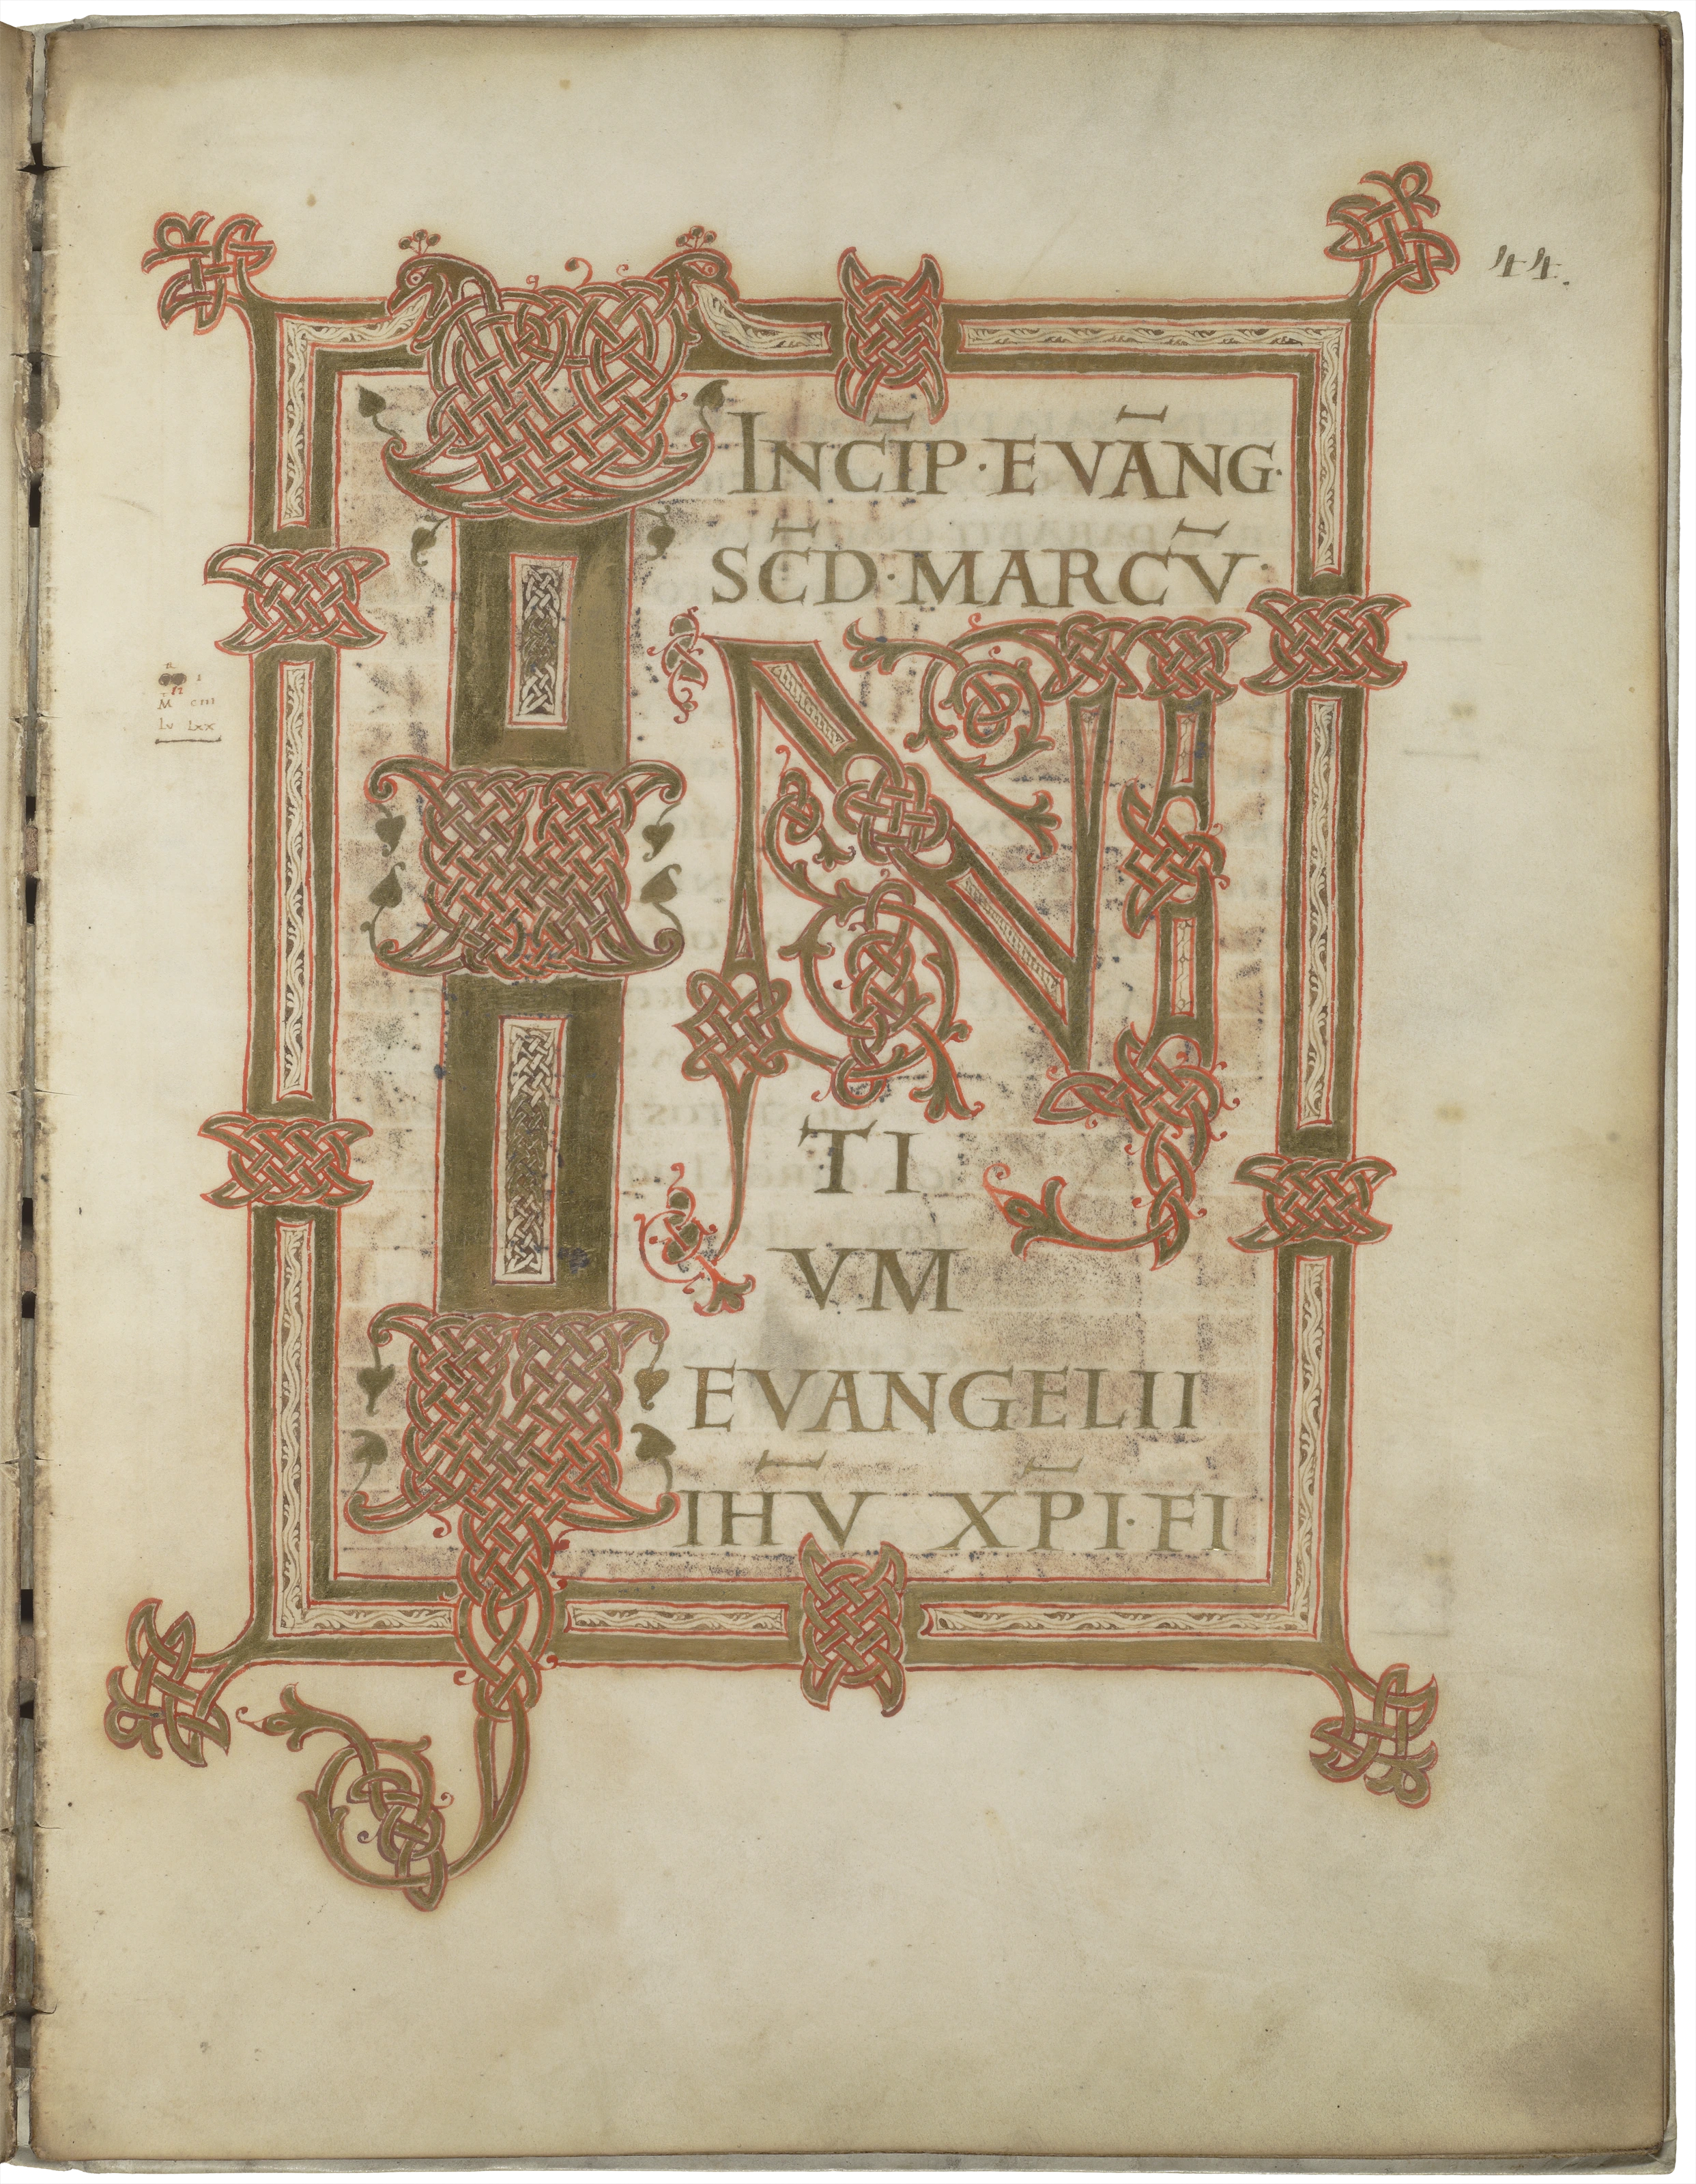 44.
INC̄IP·EVĀNG·
SC̄D·MARCV̄·
IN
TI
VM
EVANGELII
IHV̄ XP̄I·FI
M̄ CIII
LV LXX